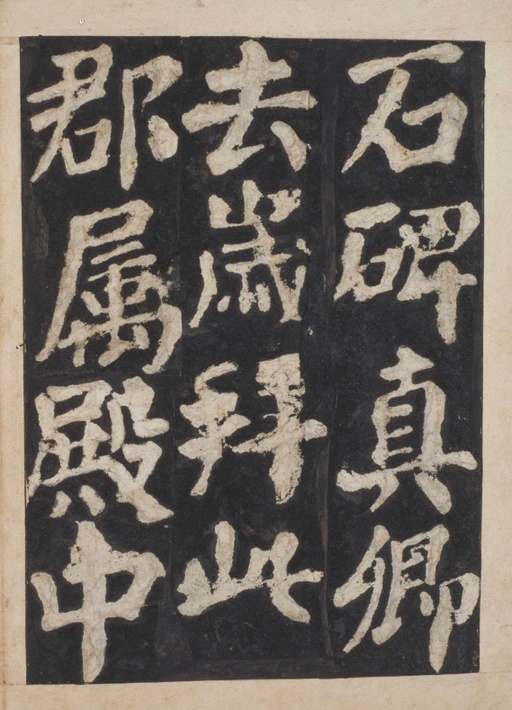 石碑真卿
去歲拜此
郡属殿中